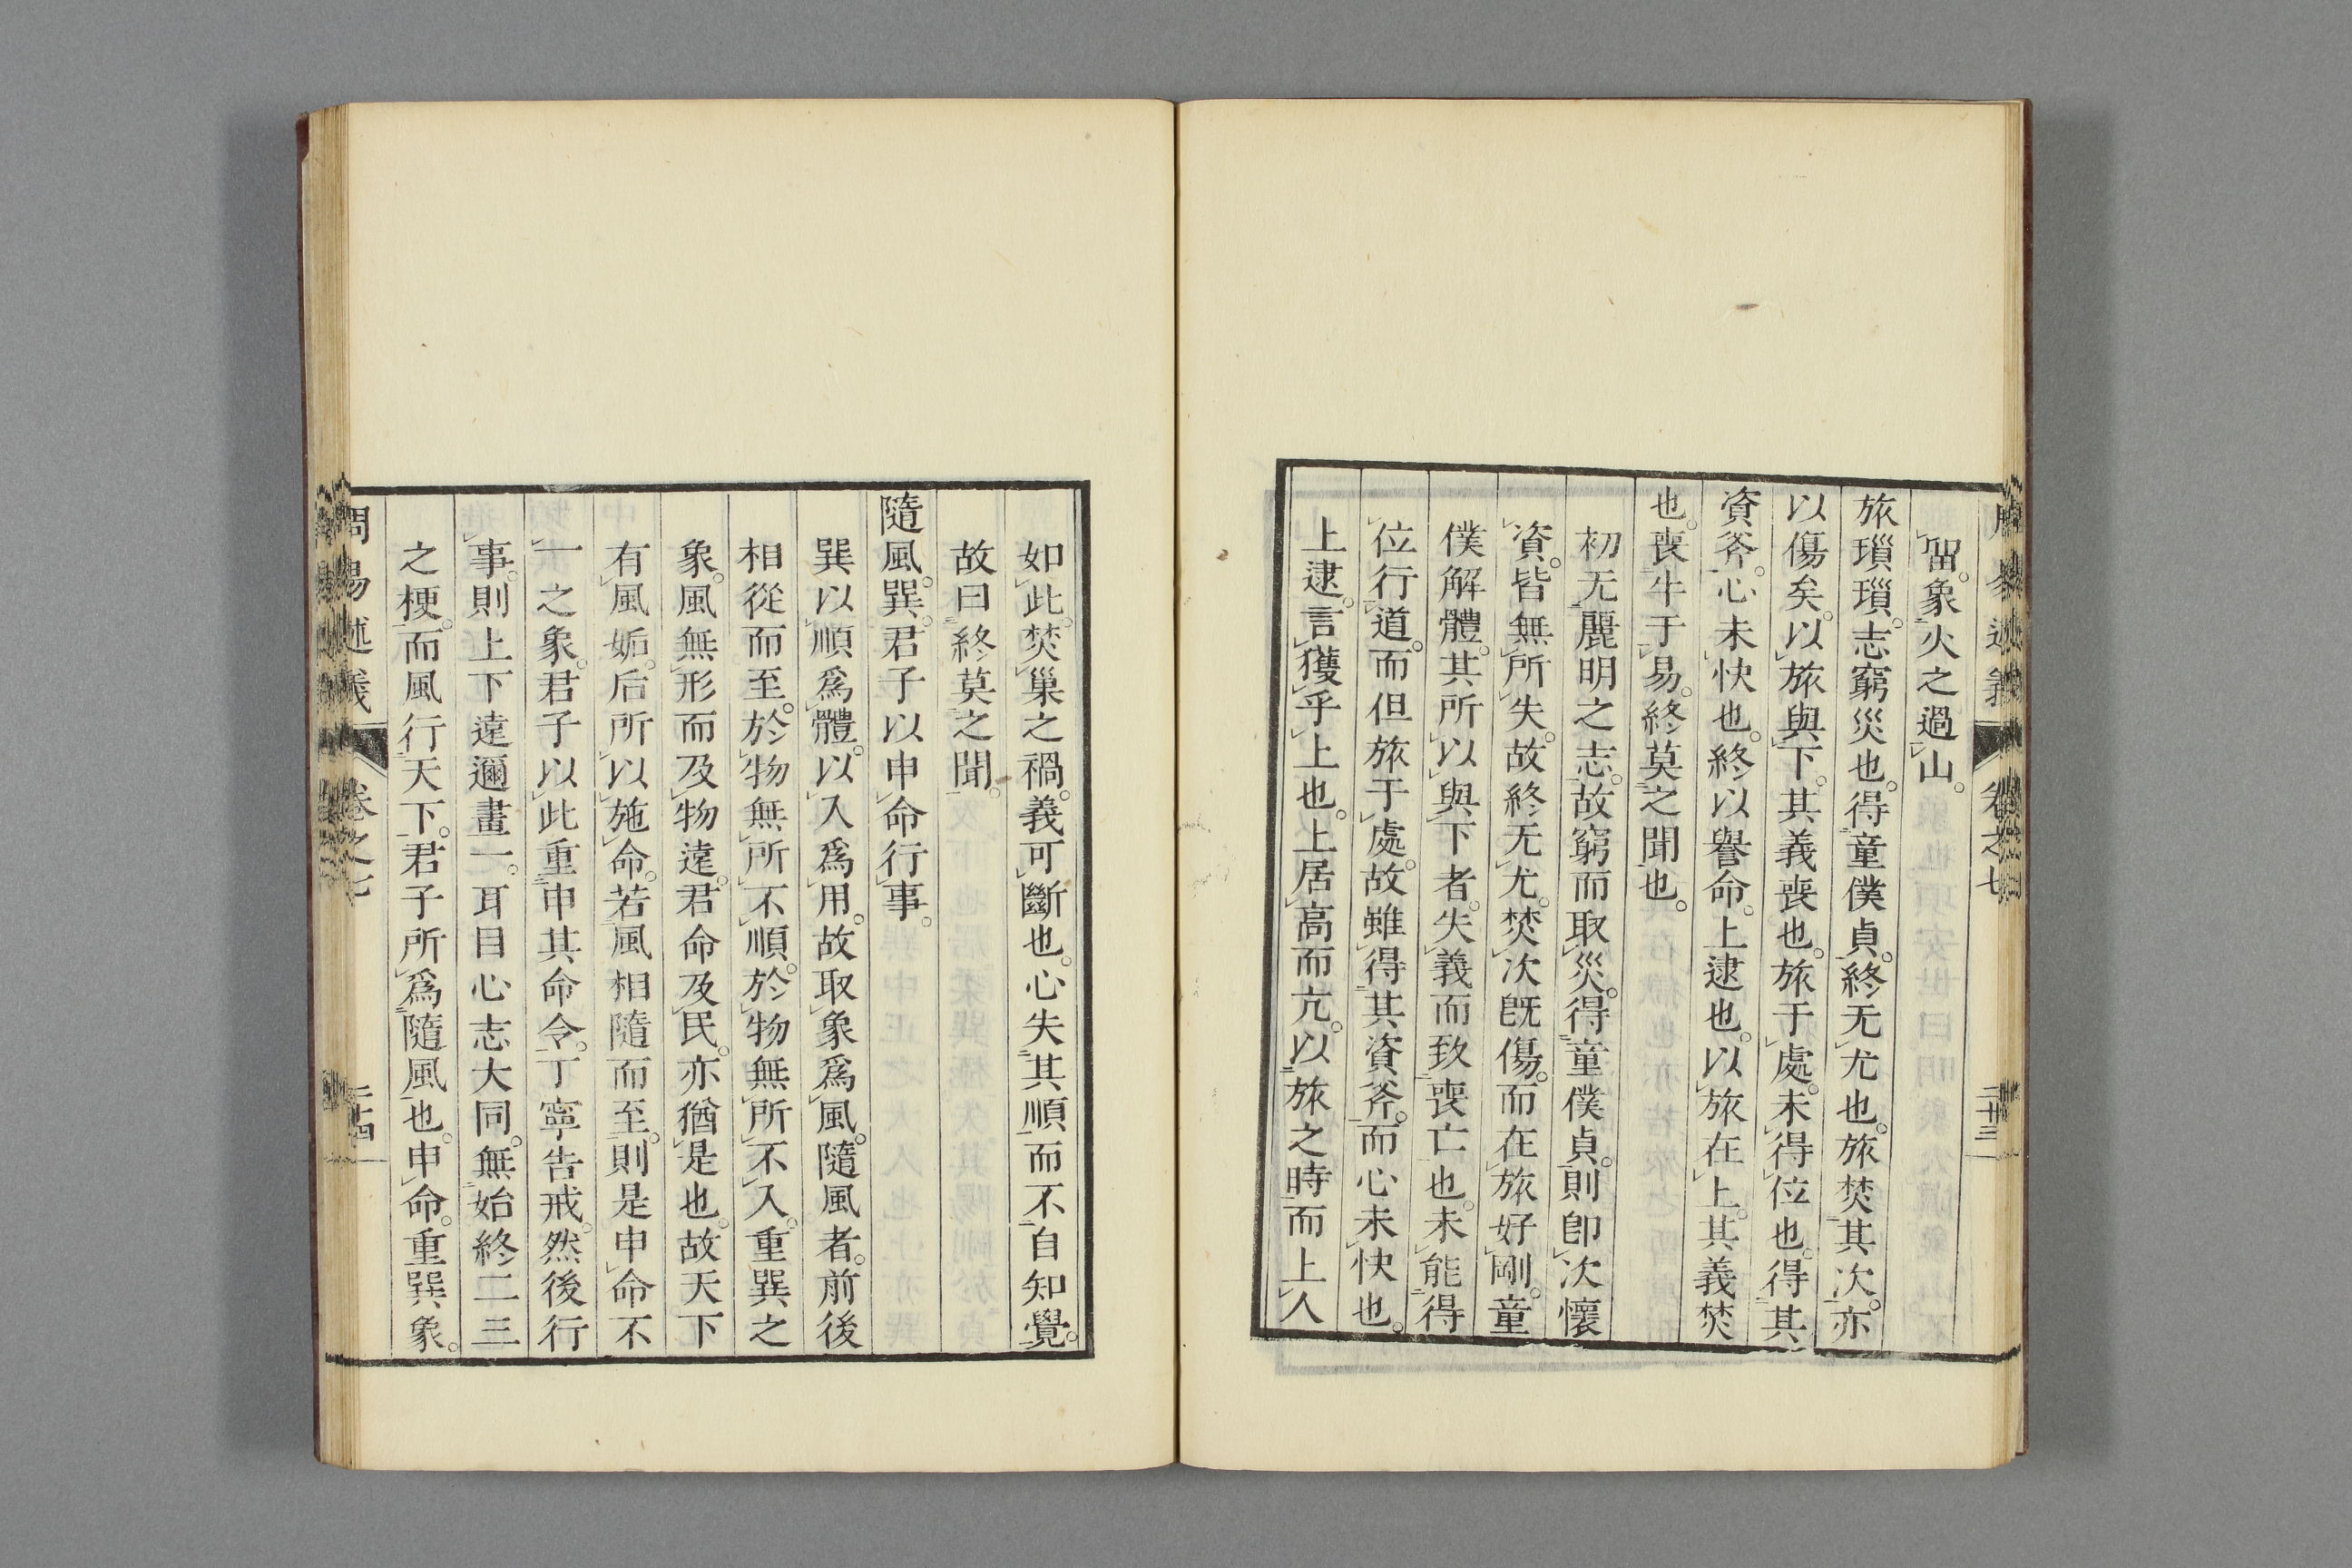 周易述義 卷之七 二十三
留。象火之過山。
旅瑣瑣。志窮災也。得童僕貞。終无尤也。旅焚其次。亦
以傷矣。以旅與下。其義喪也。旅于處。未得位也。得其
資斧。心未快也。終以譽命。上逮也。以旅在上。其義焚
也。喪牛于易。終莫之聞也。
初无麗明之志。故窮而取災。得童僕貞。則卽次懷
資。皆無所失。故終无尤。焚次旣傷。而在旅好剛。童
僕解體。其所以與下者。失義而致喪亡也。未能得
位行道。而但旅于處。故雖得其資斧。而心未快也。
上逮。言獲乎上也。上居高而亢。以旅之時而上人
如此。焚巢之禍。義可斷也。心失其順而不自知覺。
故曰終莫之聞。
隨風。巽。君子以申命行事。
巽以順爲體。以入爲用。故取象爲風。隨風者。前後
相從而至。於物無所不順。於物無所不入。重巽之
象。風無形而及物遠。君命及民。亦猶是也。故天下
有風姤。后所以施命。若風相隨而至。則是申命不
一之象。君子以此重申其命令。丁寧告戒。然後行
事。則上下遠邇畫一。耳目心志大同。無始終二三
之梗。而風行天下。君子所爲隨風也。申命。重巽象。
周易述義 卷之七 二十四